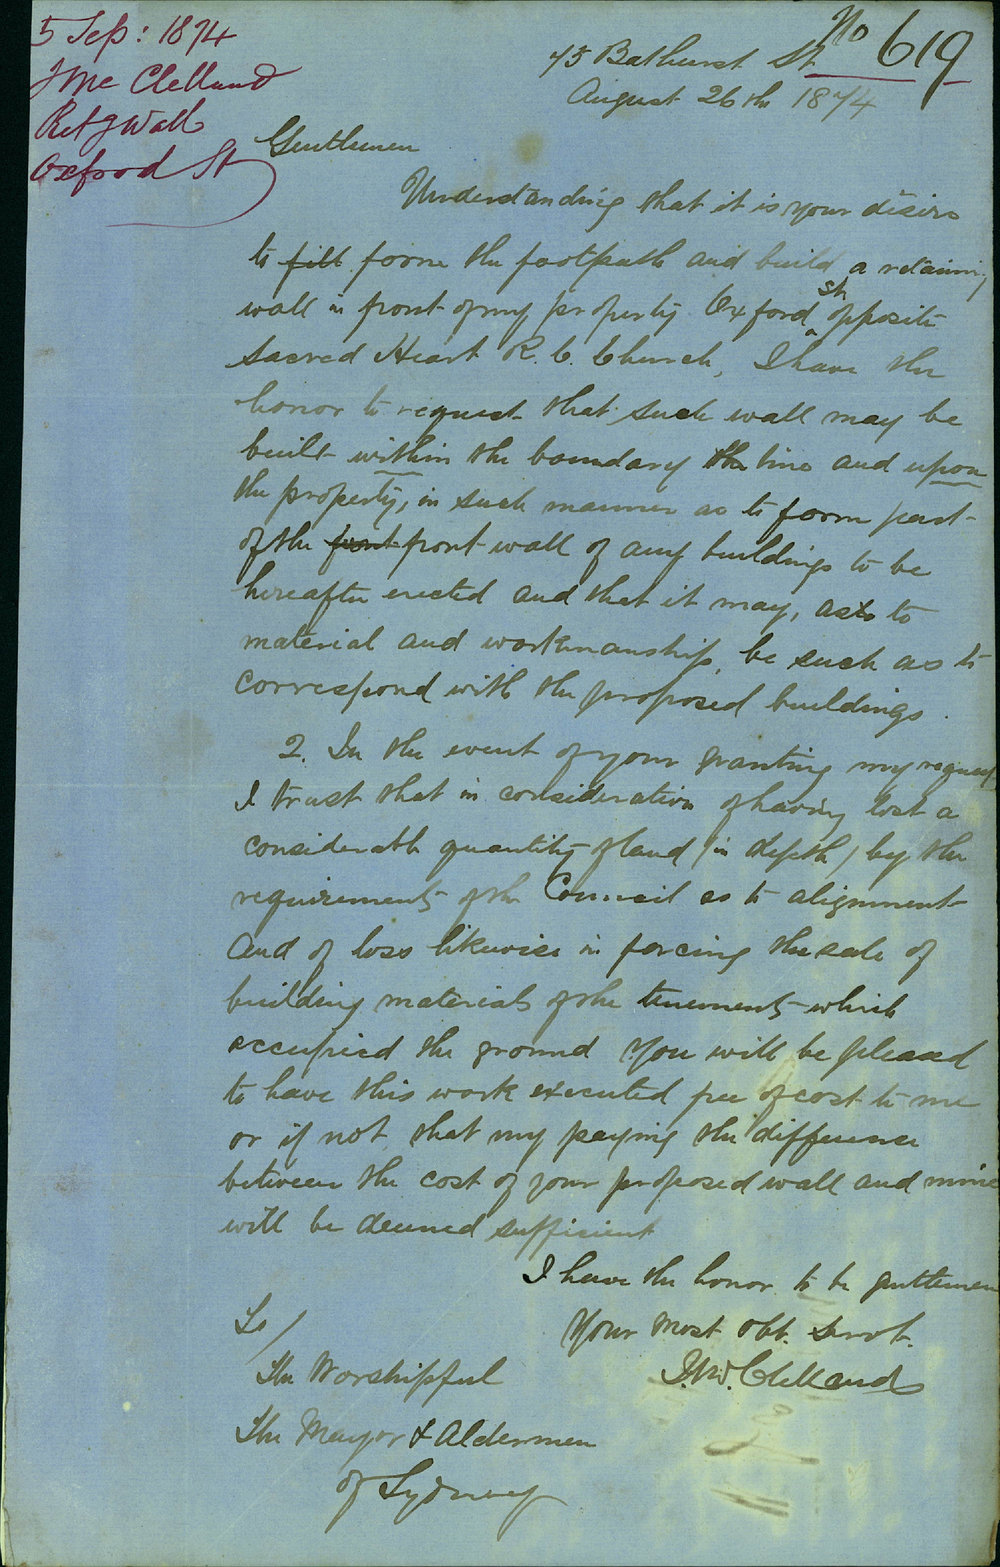 5 Sep: 1874
J Mc Clelland
Retg Wall
Oxford St
No 619
45 Bathurst St
August 26th 1874
Gentlemen
Understanding that it is your desire
to fill form the footpath and build a retaining
wall in front of my property Oxford st opposite
Sacred Heart R. C. Church, I have the
honor to request that such wall may be
built within the boundary the line and upon
the property, in such manner as to form part
of the front front wall of any buildings to be
hereafter erected and that it may, as to
material and workmanship, be such as to
correspond with the proposed buildings.
2. In the event of your granting my request
I trust that in consideration of having lost a
considerable quantity of land (in depth) by the
requirements of the Council as to alignment
and of loss likewise in forcing the sale of
building materials of the tenements which
occupied the ground You will be pleased
to have this work executed free of cost to me
or if not that my paying the difference
between the cost of your proposed wall and mine
will be deemed sufficient
I have the honor to be gentlemen
Your most obt. servt.
J. McClelland
To/
The Worshipful
The Mayor & Aldermen
of Sydney